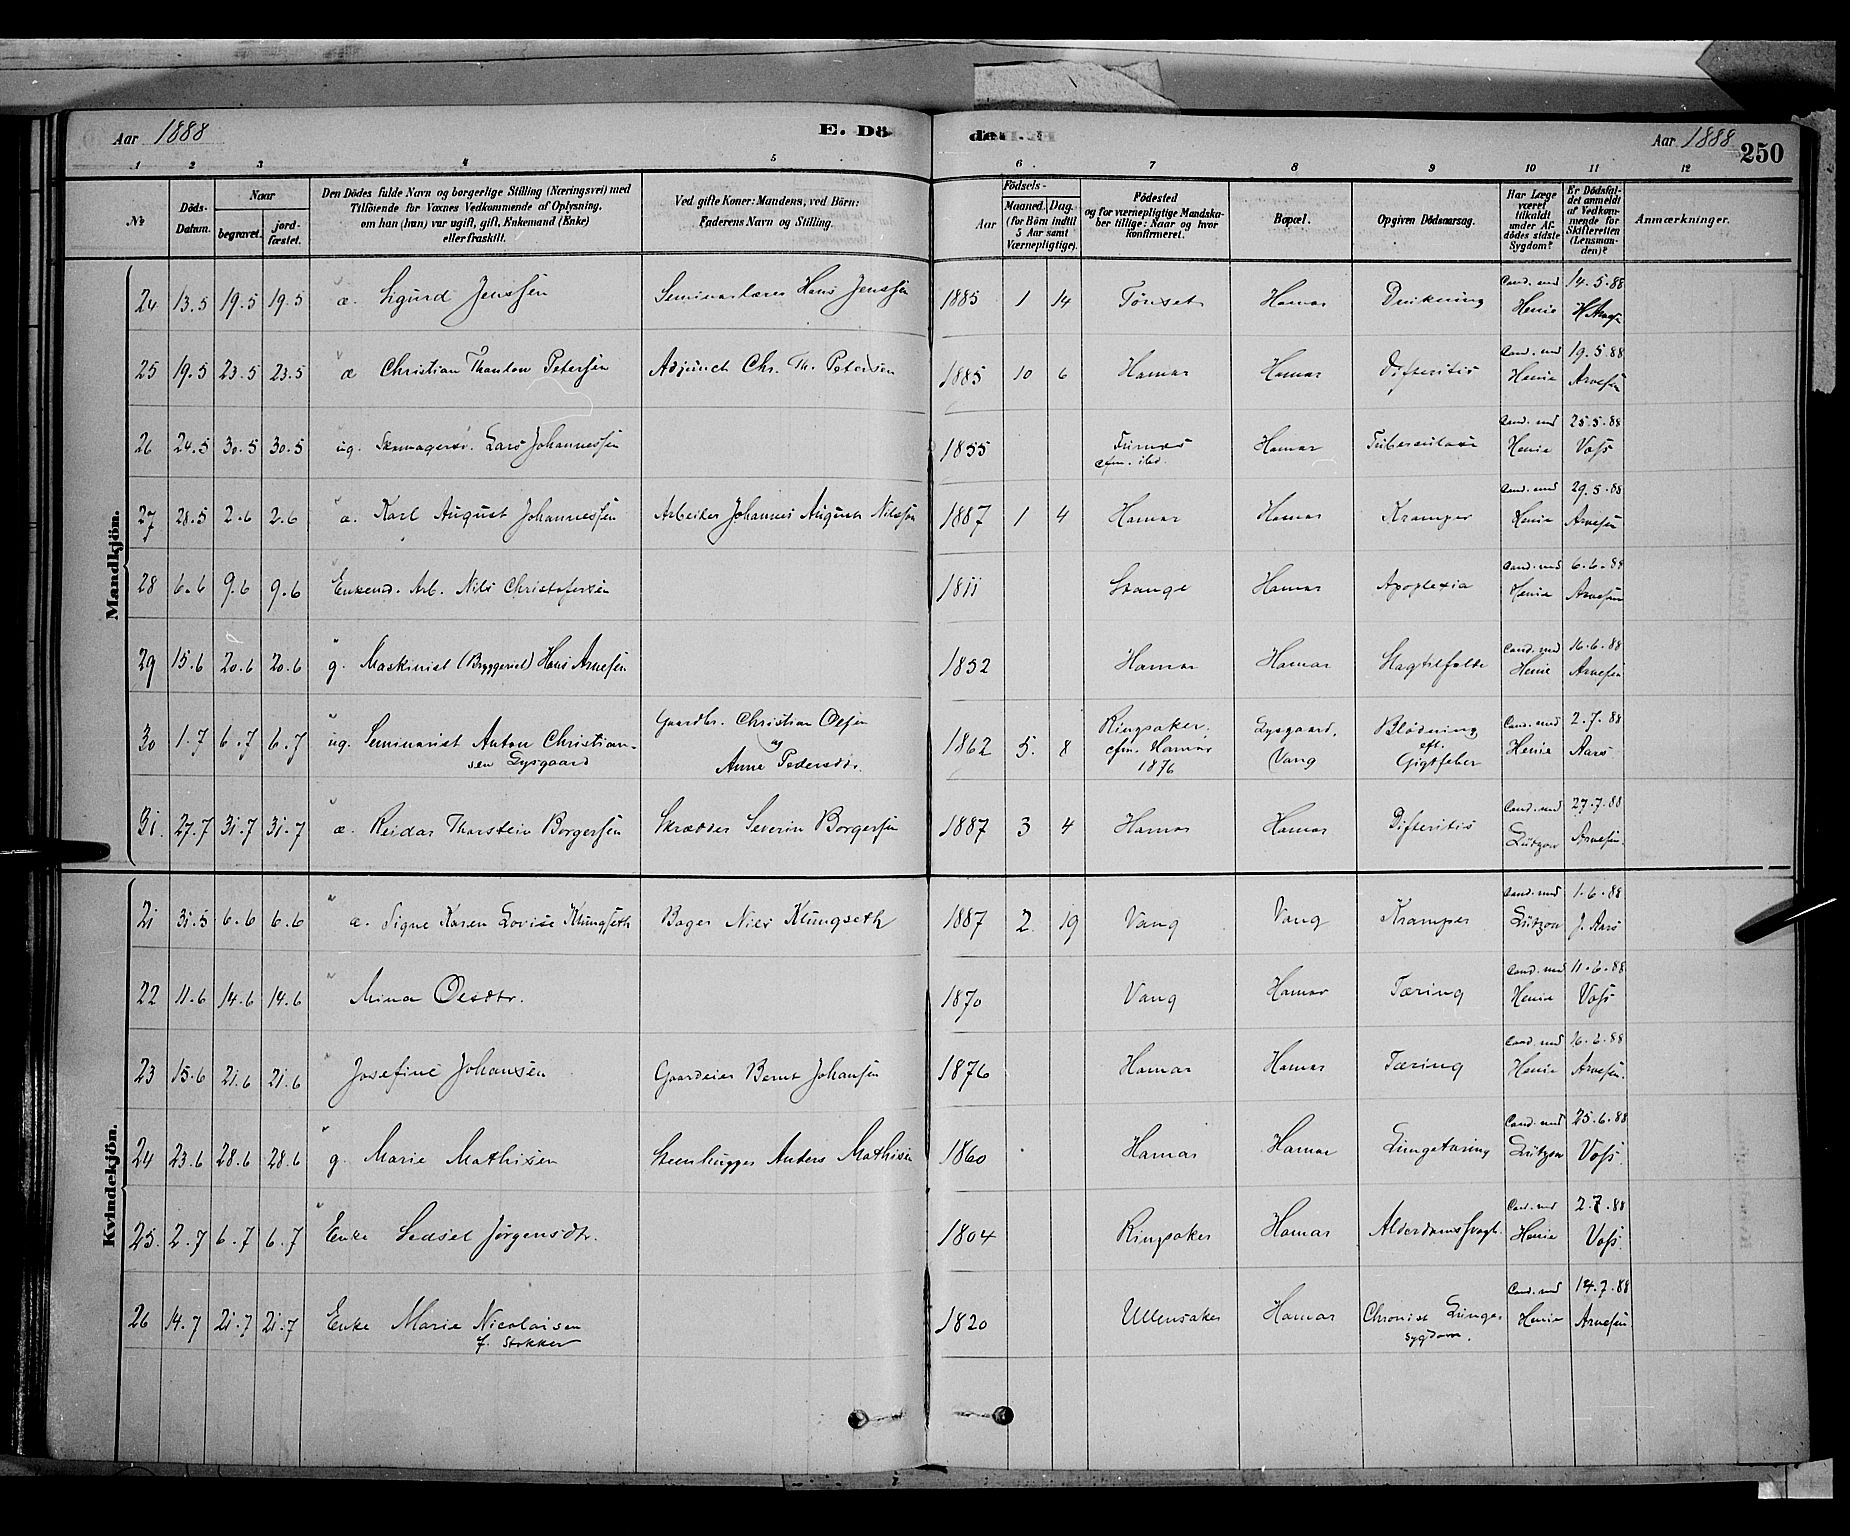 Aar 1888 E. Dö-
de. Aar 1888 250
1 2 3 4 5 6 7 8 9 10 11 12
No
Döds-Datum.
Naar
begravet.
jord-fæstet.
Den Dödes fulde Navn og borgerlige Stilling (Næringsvei) med
Tilföiende for Voxnes Vedkommende af Oplysning,
om han (hun) var ugift, gift, Enkemand (Enke)
eller fraskilt.
Ved gifte Koner: Mandens, ved Börn:
Faderens Navn og Stilling.
Födsels-
Aar
Maaned. Dag.
(for Börn indtil
5 Aar samt
Værnepligtige).
Födested
og for værnepligtige Mandska-
ber tillige: Naar og hvor
konfirmeret.
Bopæl.
Opgiven Dödsaarsag.
Har Læge
været
tilkaldt
under Af-
dödes sidste
Sygdom?
Er Dödsfal-
det anmeldt
af Vedkom-
mende for
Skifteretten
(Lensman-
den)?
Anmærkninger.
Mandkjön.
24 13.5 19.5 19.5 æ. Sigurd Jenssen Seminarlærer Hans Jenssen 1885 1 14 Tönset Hamar Drukning Cand. med Henie 14.5.88 H Arnesen
25 19.5 23.5 23.5 æ Christian Thanlow Petersen Adjunct Chr. Th. Petersen 1885 10 6 Hamar Hamar Difteritis Cand. med Henie 19.5.88 Arnesen
26 24.5 30.5 30.5 ug. Skomagersv. Lars Johannessen 1855 Furnes cfm. ibd. Hamar Tuberculose Cand. med Henie 25.5.88 Voss
27 28.5 2.6 2.6 æ. Karl August Johannessen Arbeider Johannes August Nilssen 1887 1 4 Hamar Hamar Kramper Cand. med Henie 29.5.88 Arnesen
28 6.6 9.6 9.6 Enkem. Arb. Nils Christofersen 1811 Stange Hamar Apoplexia Cand. med Henie 6.6.88 Arnesen
29 15.6 20.6 20.6 g. Maskinist (Bryggeriet) Hans Arnesen 1852 Hamar Hamar Slagtilfælde Cand. med Henie 16.6.88 Arnesen
30 1.7 6.7 6.7 ug. Seminarist Anton Christian-
sen Lysgaard Gaardbr. Christian Olsen
og
Anne Pedersdtr. 1862 5. 8 Ringsaker. cfm. Hamar 1876 Lysgaard, Vang Blödning eft. Gigtfeber Cand. med Henie 2.7.88 Aars
31. 27.7 31.7 31.7 æ. Reidar Thorstein Borgersen Skrædder Severin Borgersen 1887 3 4 Hamar Hamar Difteritis Cand. med Lützow 27.7.88 Arnesen.
Kvindekjön.
21 31.5 6.6 6.6 æ. Signe Karen Lovise Klungseth Bager Nils Klungseth 1887 2. 19 Vang Vang Kramper Cand. med Lützow 1.6.88 J. Aars
22 11.6 14.6 14.6 Mina Olsdtr. 1870 Vang Hamar Tæring Cand. med Henie 11.6.88 Voss
23 15.6 21.6 21.6 Josefine Johansen Gaardeier Bernt Johansen 1876 Hamar Hamar Tæring Cand. med Henie 16.6.88 Arnesen.
24 23.6 28.6 28.6 g. Marie Mathisen Steenhugger Anders Mathisen 1860 Hamar Hamar Lungetæring Cand. med Lützow 25.6.88 Voss
25. 2.7 6.7 6.7 Enke Sedsel Jørgensdtr. 1804 Ringsaker Hamar Alderdomssvagh. Cand. med Henie 2.7.88 Voss.
26 14.7 21.7 21.7 Enke Marie Nicolaisen
f. Stokker 1820 Ullensaker Hamar Chronisk Lunge-
sygdom. Cand. med Henie 14.7.88 Arnesen